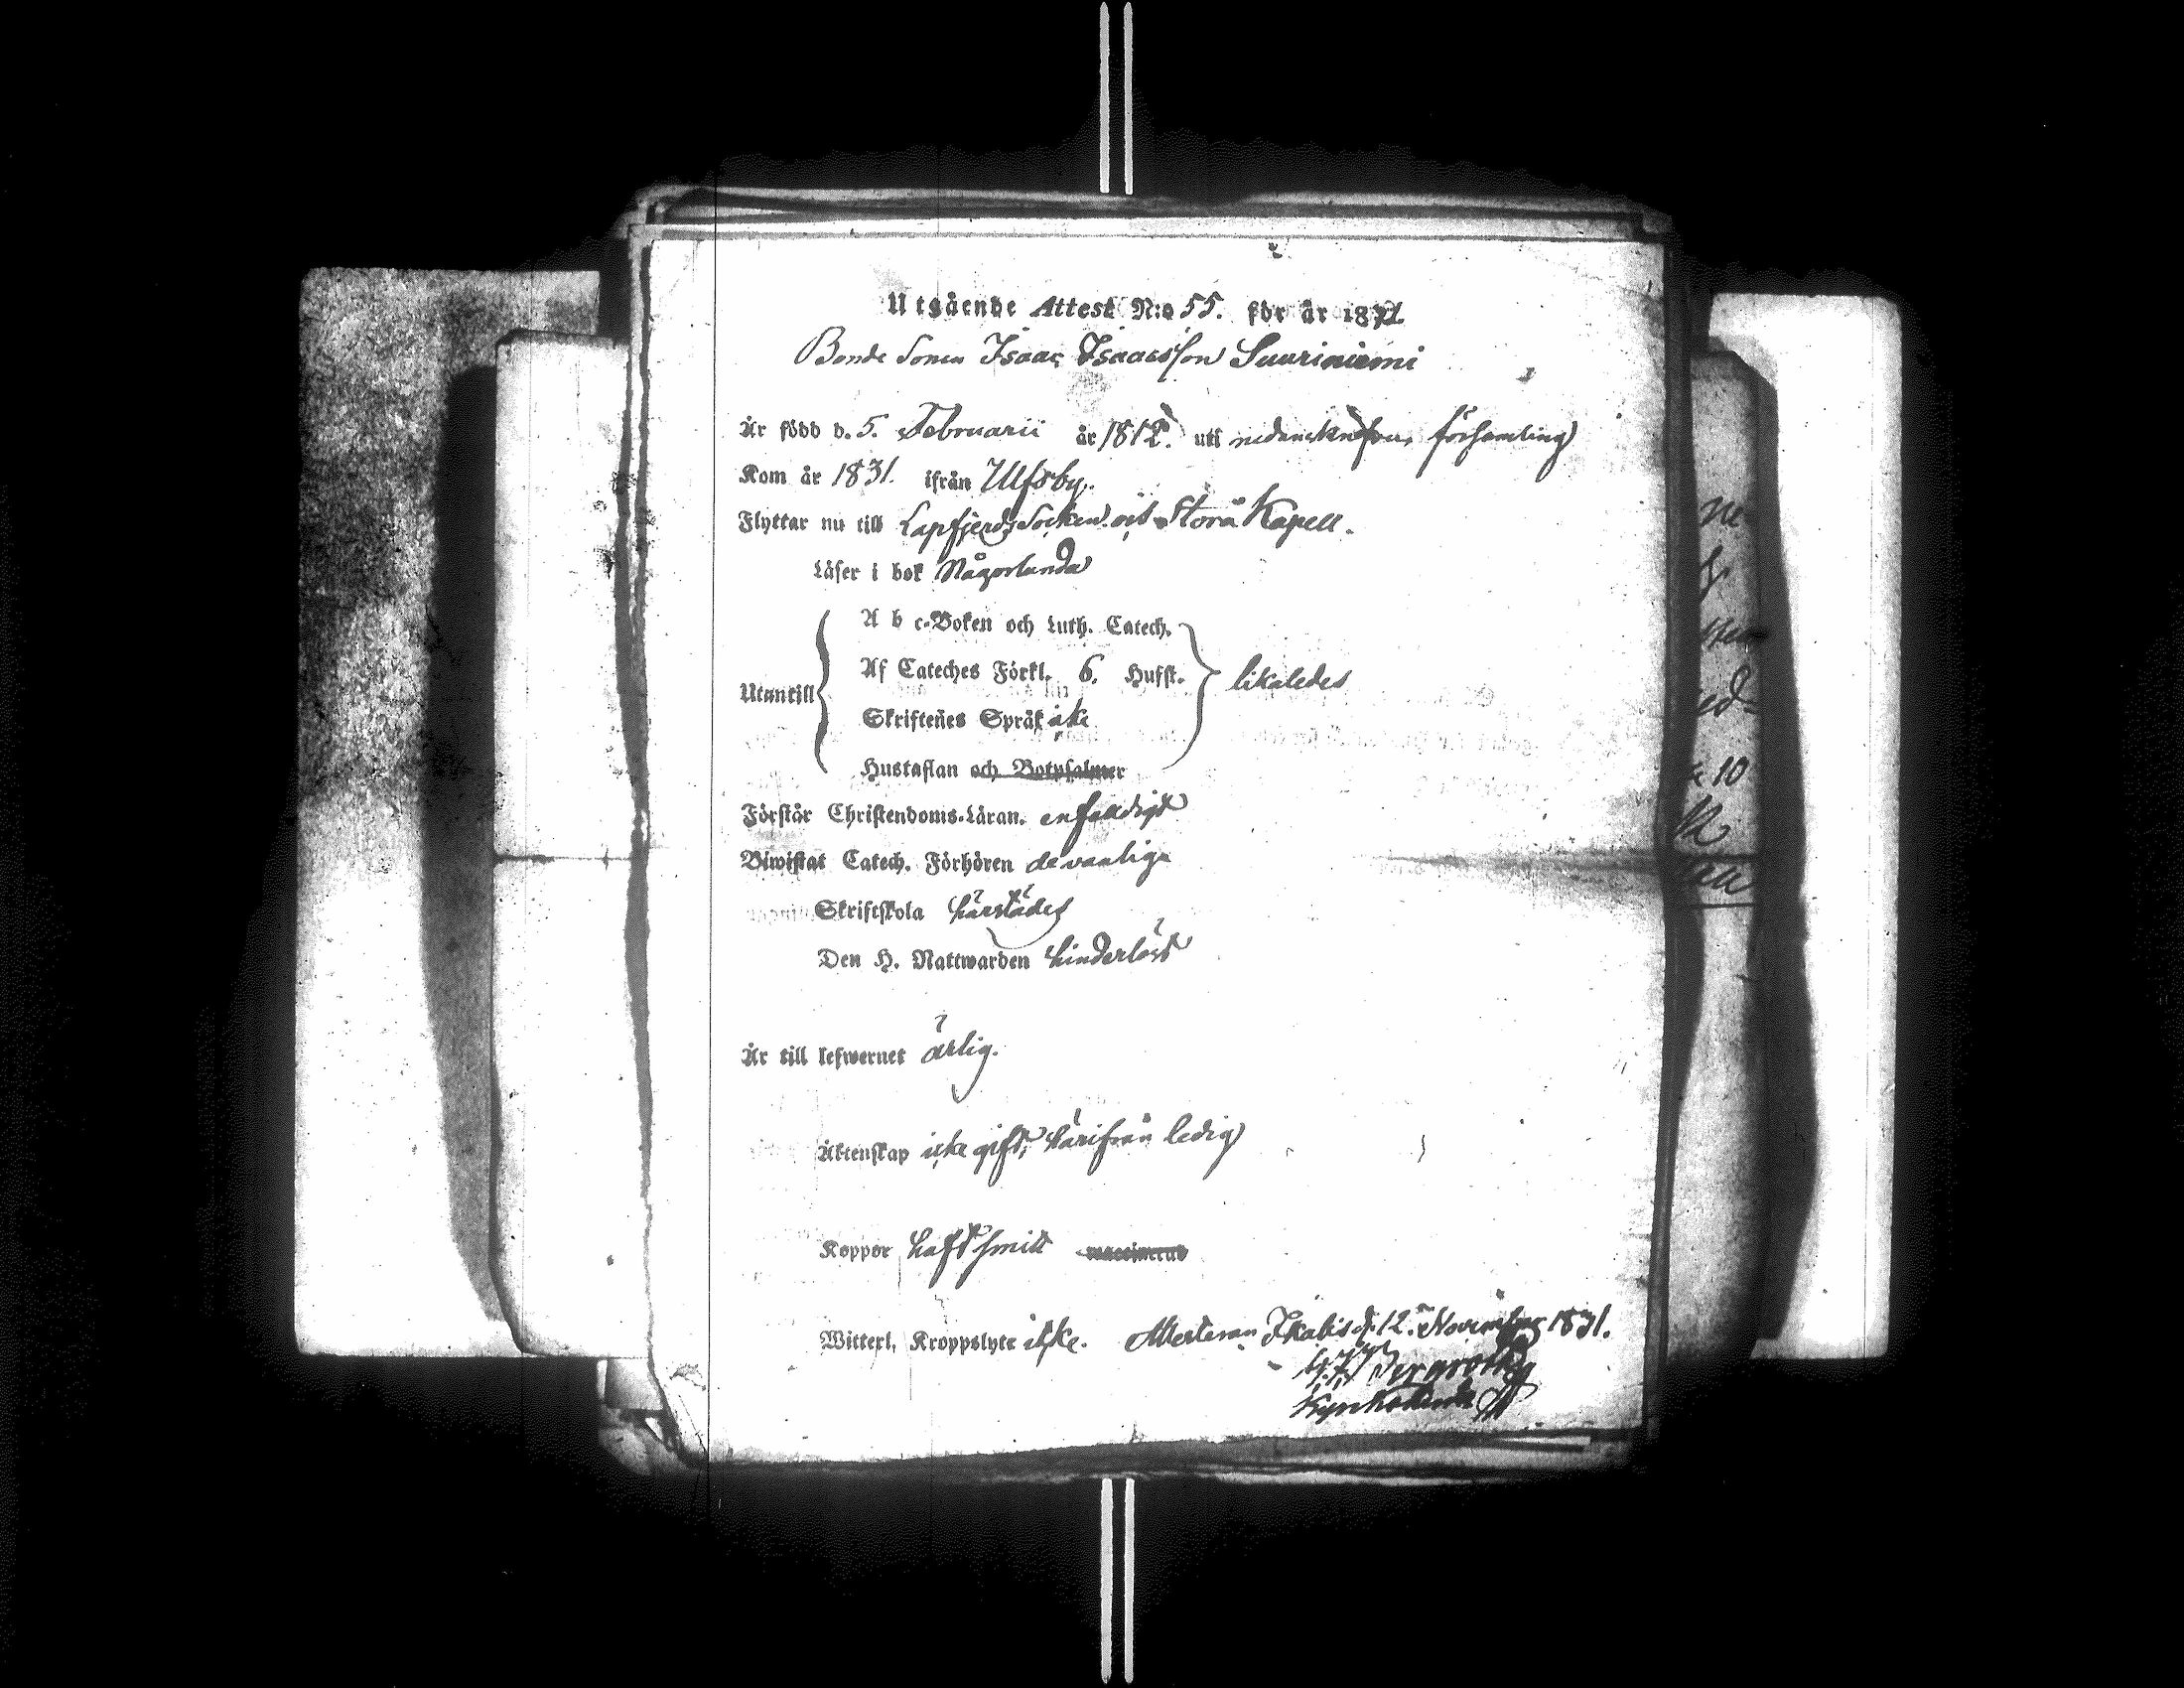 Utgående Attest N:o 55. för år 1831
Bonde Sonen Isaac Isaacsson Suuriniemi
Är född d. 5. Februarii år 1812. uti församling
Kom år 1831. ifrån Ulfsby.
Flyttar nu till Lapfjerds Socken och Storå Kapell.
Läser i bok Någorlunda
A b c-Boken och Luth. Catech.
Af Cateches Förkl. 6. Hufst.
Utantill likaledes
Skriftenes Språk icke
Hustaflan och Botpsalmer
Förstår Christendoms-Läran. enfaldigt
Biwistat Catech. Förhören de vanliga
Skriftskola härstädes
Den H. Nattwarden hinderlöst
Är till lefwernet ärlig.
Äktenskap icke gift, härifrån ledig
Koppor haft smitt
Witterl. Kroppslyte icke. Ikalis d. 12. November 1831.